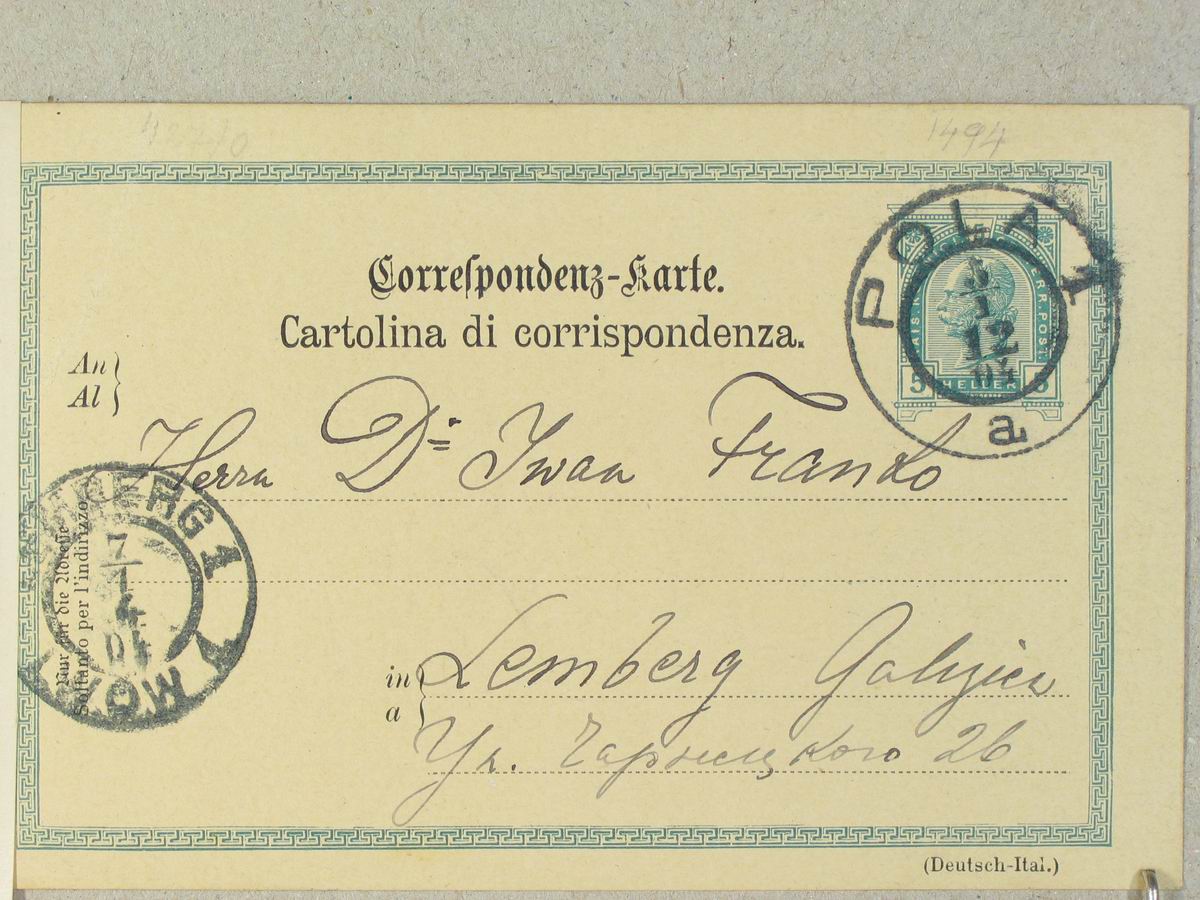 1494
Correspondenz-Karte.
Cartolina di corrispondenza.
An
Al
Herrn Dr Iwan Franko
in
a
Lemberg Galizien
Ул. Чарнецкого 26
Nur für die Adresse
Soltanto per l'indirizzo
POLA 1
1
12
04
a
5 HELLER 5
LEMBERG 1
7
1
4
04
LWÓW
(Deutsch-Ital.)